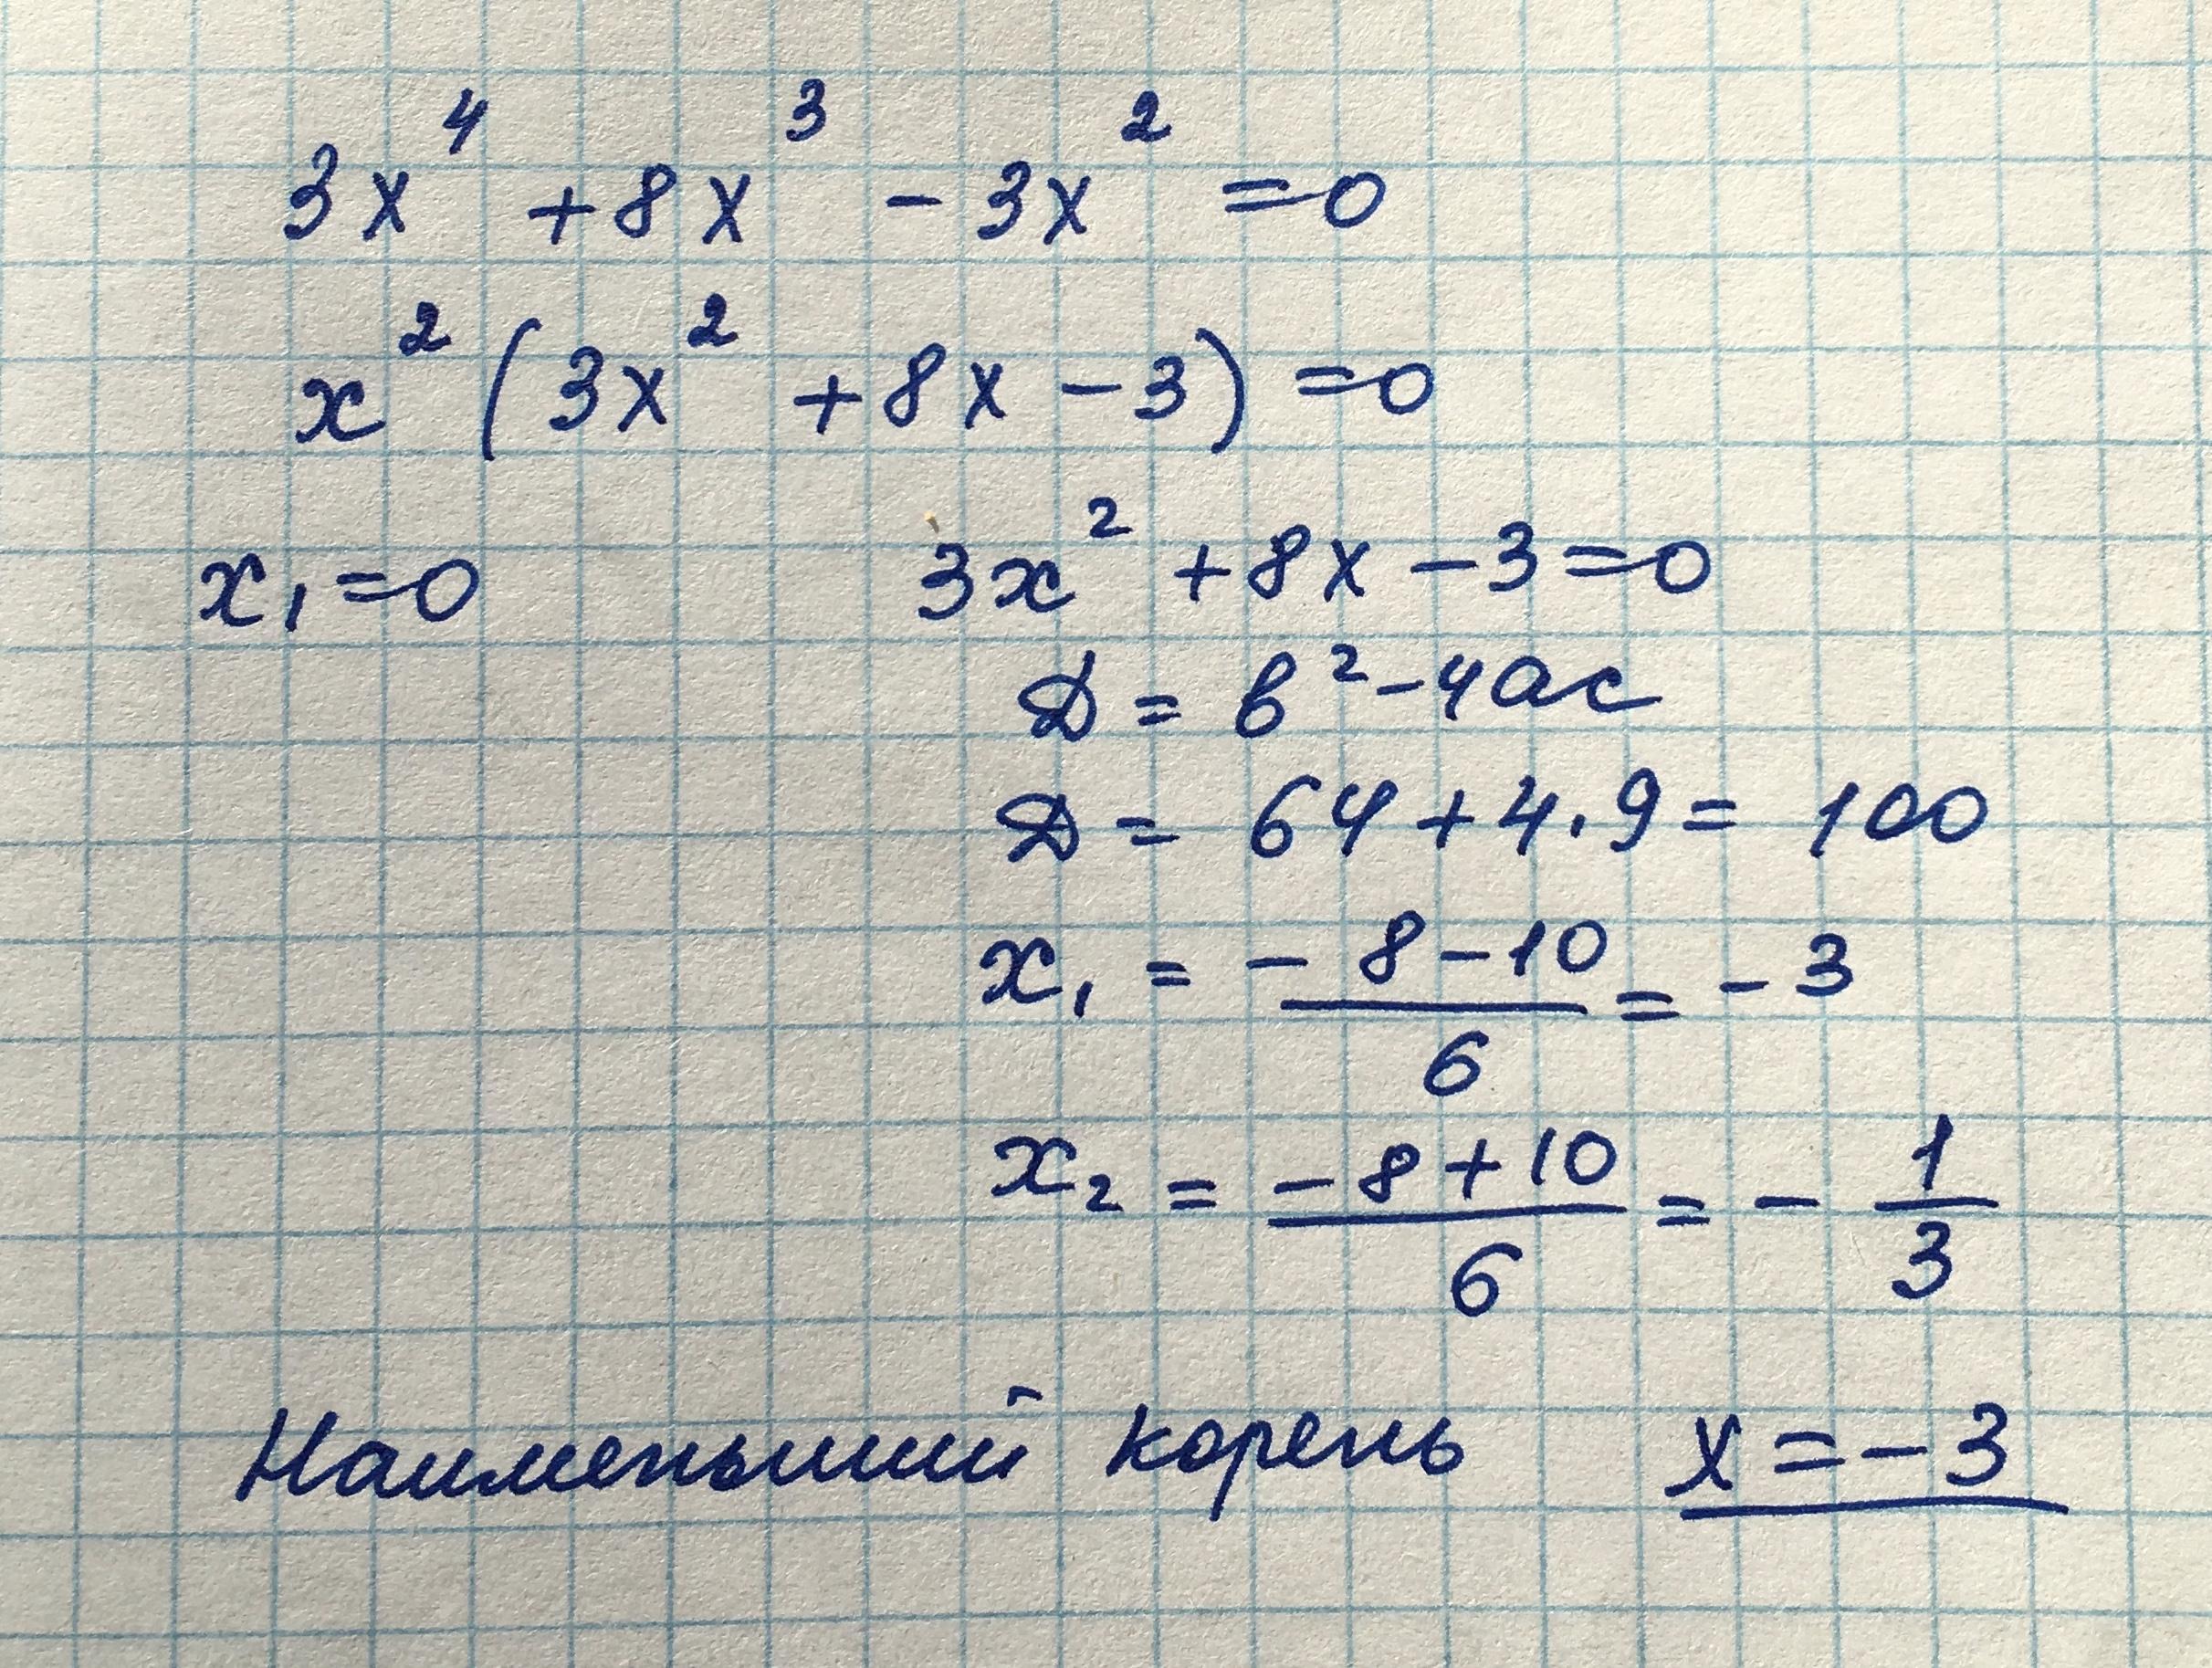 3x⁴ + 8x³ - 3x² = 0
x² (3x² + 8x - 3) = 0
x₁ = 0
3x² + 8x - 3 = 0
Д = в² - 4ac
Д = 64 + 4 · 9 = 100
x₁ = (-8 - 10)/6 = -3
x₂ = (-8 + 10)/6 = - 1/3
Наименьший корень x = -3